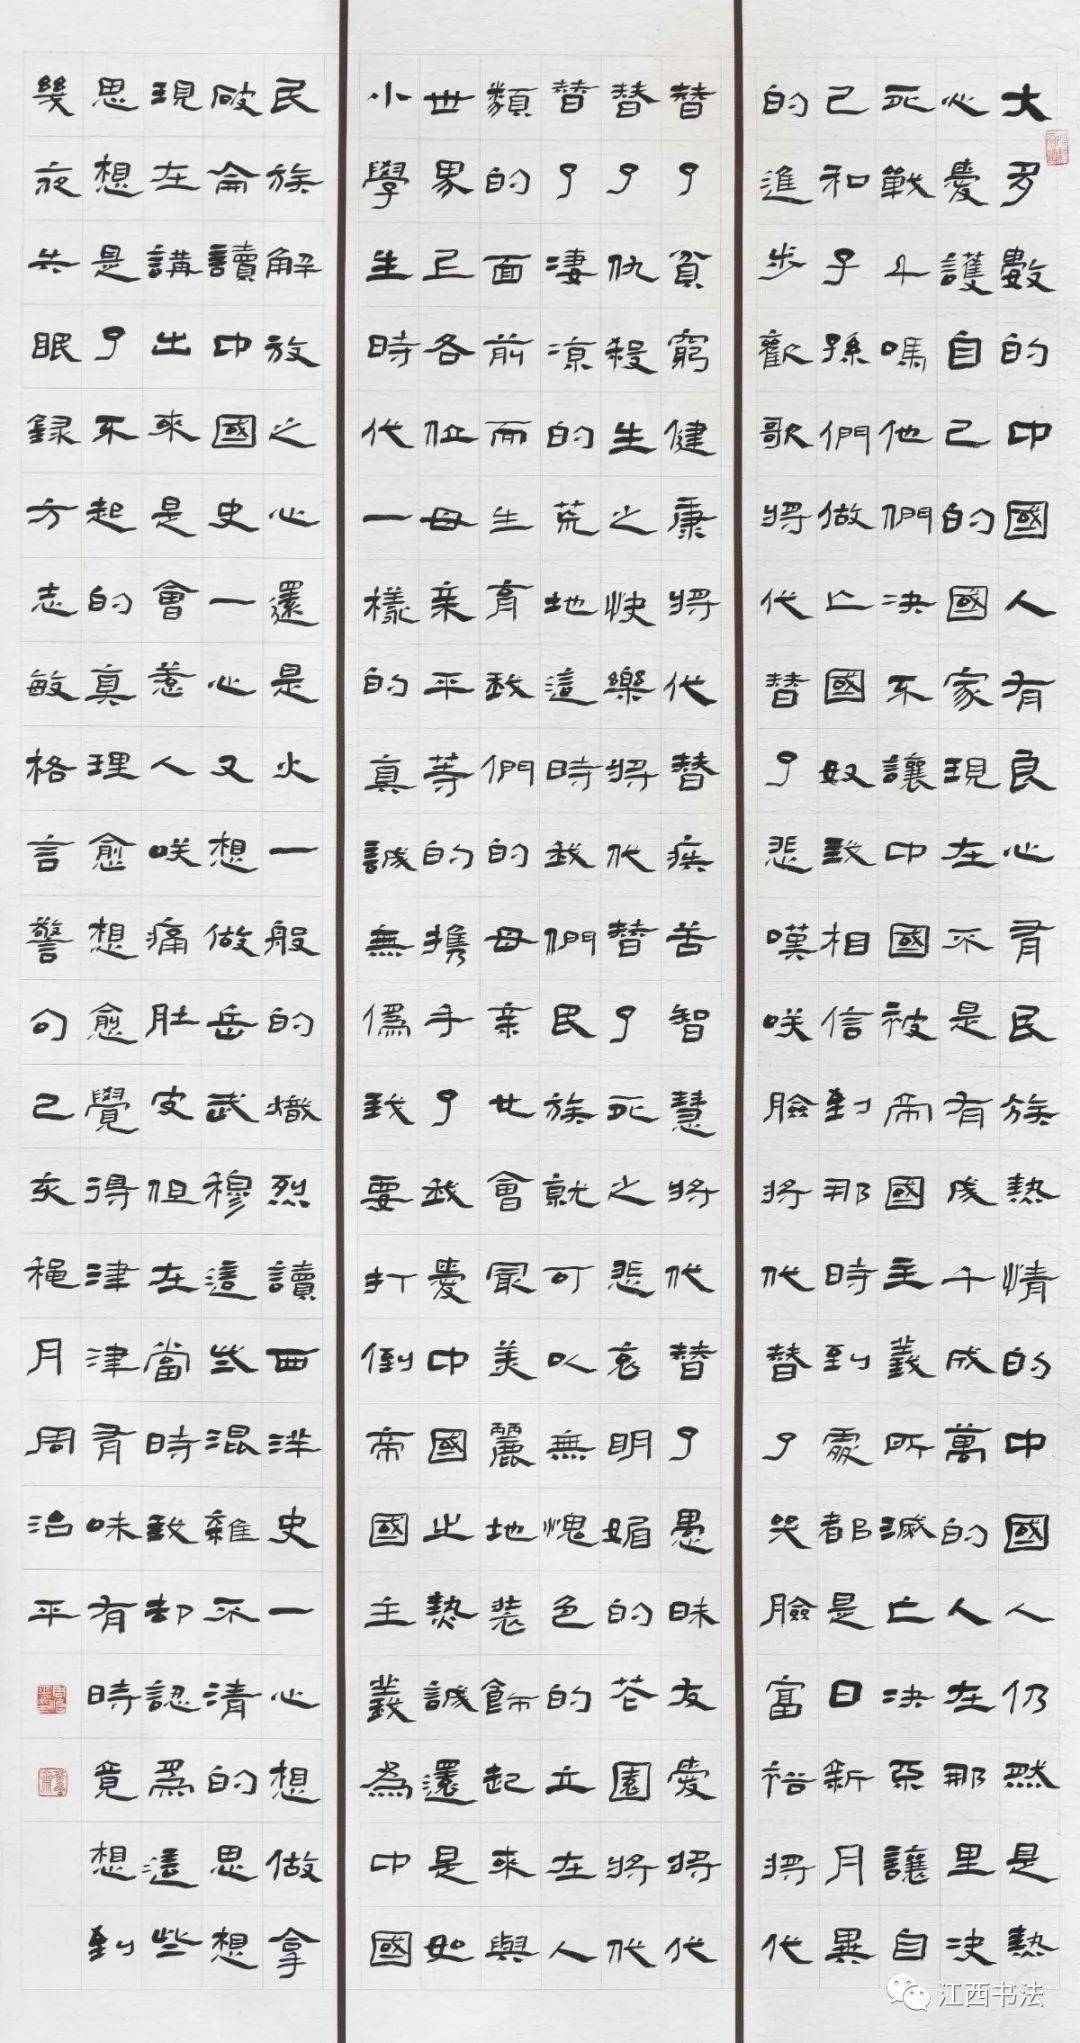 大多數的中國人有良心有民族熱情的中國人仍然是熱
心愛護自己的國家現在不是有成千成萬的人在那里決
死戰斗嗎他們決不讓中國被帝國主義所滅亡決不讓自
己和子孫們做亡國奴我相信到那時到處都是日新月異
的進步歡歌將代替了悲嘆咲臉將代替了哭臉富裕將代
替了貧窮健康將代替疾苦智慧將代替了愚昧友愛將代
替了仇殺生之快樂將代替了死之悲哀明媚的花園將代
替了凄凉的荒地這時我們民族就可以無愧色的立在人
類的面前而生育我們的母親也會最美麗地裝飾起來與
世界上各位母親平等的攜手了我愛中國之熱誠還是如
小學生時代一樣的真誠無偽我要打倒帝國主義為中國
民族解放之心還是火一般的熾烈讀西洋史一心想做拿
破侖讀中國史一心又想做岳武穆這些混雜不清的思想
現在講出來是會惹人咲痛肚皮但在當時我却認為這些
思想是了不起的真理愈想愈覺得津津有味有時竟想到
幾夜失眠錄方志敏格言警句己亥穐月周治平
江西书法